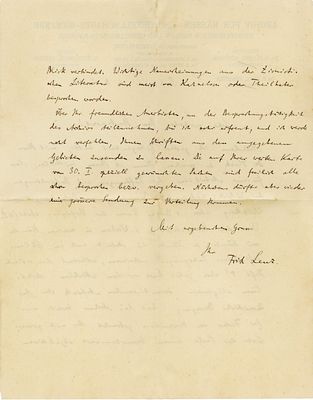 Blick verbindet. Wichtige Neuerscheinungen aus der Zionisti-
schen Literatur sind meist von Katznelson oder Theilhaber
besprochen worden.
Über Ihr freundliches Anerbieten, an der Besprechungstätigkeit
des Archivs teilzunehmen, bin ich sehr erfreut, und ich werde
nicht verfehlen, Ihnen Schriften aus dem angegebenen
Gebieten zusenden zu lassen. Die auf Ihrer werten Karte
vom 30. I speziell gewünschten Sachen sind freilich alle
schon besprochen bezw. vergeben. Nächstens dürfte aber wieder
eine grössere Sendung zur Verteilung kommen.
Mit ergebenstem Gruss
Ihr
Fritz Lenz.